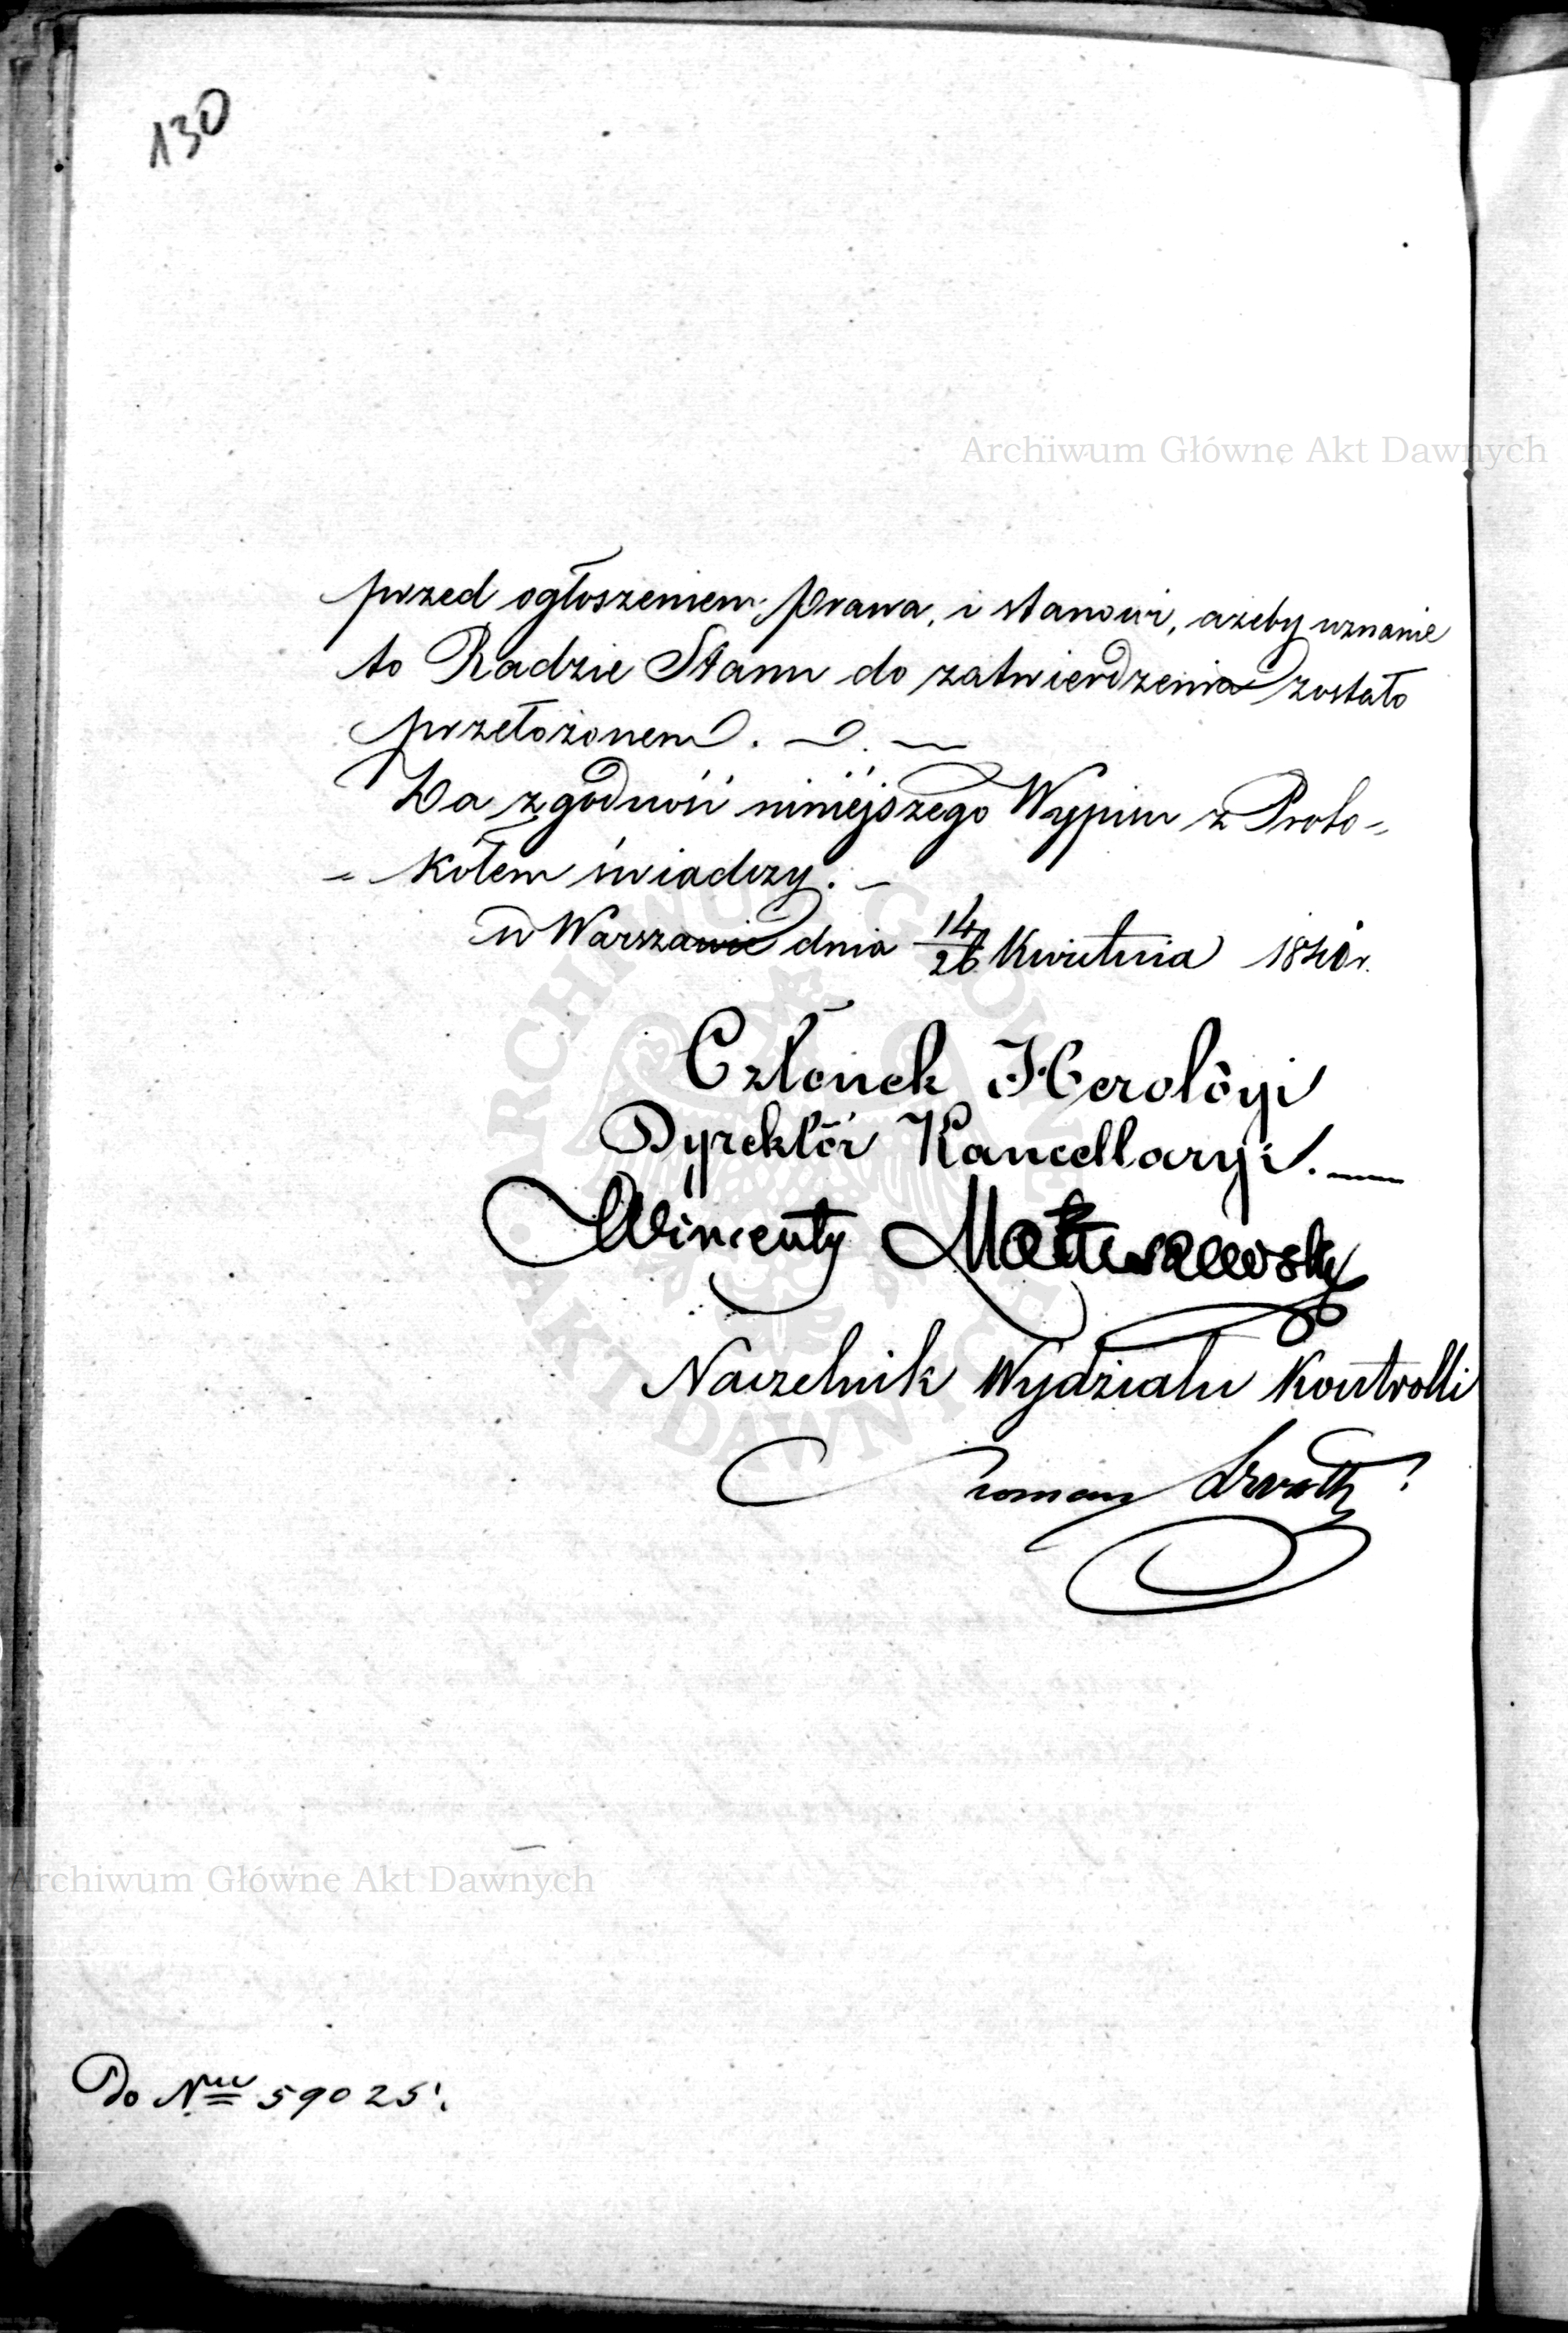 130
Archiwum Główne Akt Dawnych
przed ogłoszeniem Prawa, i stanowi, ażeby uznanie
to Radzie Stanu do zatwierdzenia zostało
przełożonem. —
Za zgodność niniejszego Wypisu z Proto-
- kółem świadczy. -
w Warszawie dnia 14/26 Kwietnia 1840 r.
Członek Heroldyi
Dyrektór Kancellaryi. —
Wincenty
Naczelnik Wydziału Kontrolli
Roman
ARCHIWUM GŁÓWNE AKT DAWNYCH
Archiwum Główne Akt Dawnych
Do Nru 59025.